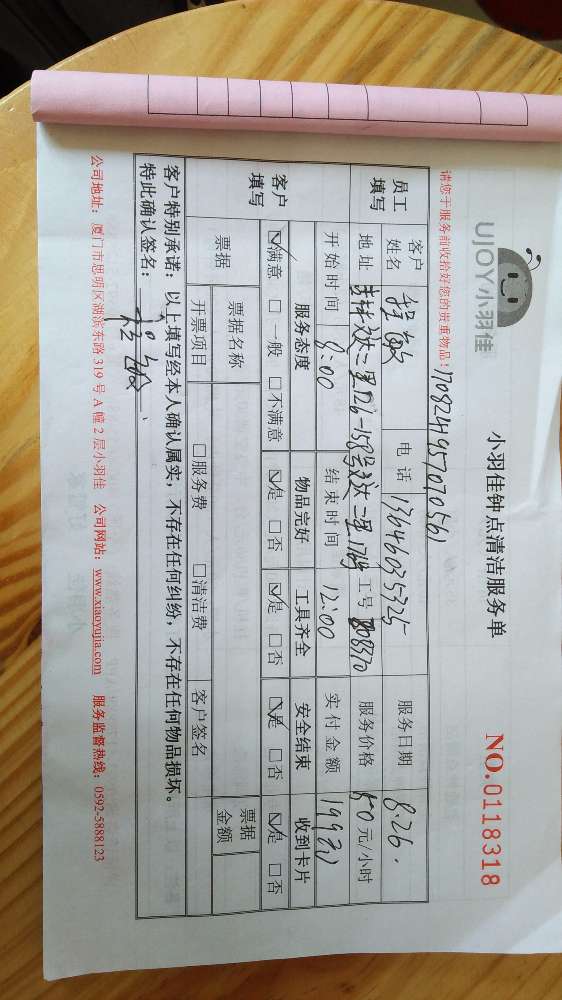 UJOY小羽佳
小羽佳钟点清洁服务单
NO.0118318
请您于服务前收拾好您的贵重物品！
170824195707056 1
员工填写
客户姓名 程敏 电话 13646035325 服务日期 8.26.
地址 吉祥家园二里126-158号 二里176号 工号 808370 服务价格 50元/小时
开始时间 8:00 结束时间 12:00 实付金额 199元
客户填写
服务态度 物品完好 工具齐全 安全结束 收到卡片
☑满意 □一般 □不满意 ☑是 □否 ☑是 □否 ☑是 □否 ☑是 □否
票据 票据名称 票据金额
开票项目 □服务费 □清洁费 客户签名
客户特别承诺：以上填写经本人确认属实，不存在任何纠纷，不存在任何物品损坏。
特此确认签名：程敏
公司地址：厦门市思明区湖滨东路319号A幢2层小羽佳 公司网站：www.xiaoyujia.com 服务监督热线：0592-5888123